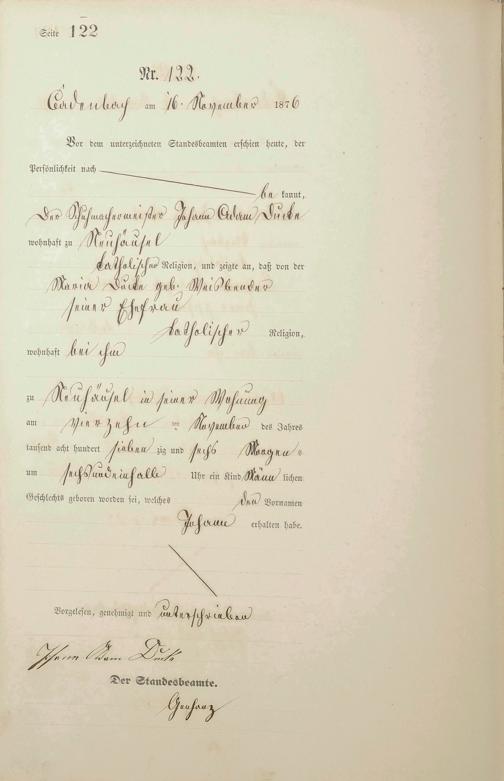 Seite 122
Nr. 122.
Cadenbach am 16. November 1876
Vor dem unterzeichneten Standesbeamten erschien heute, der
Persönlichkeit nach
be kannt,
Der Schuhmachermeister Johann Adam Ducke
wohnhaft zu Neuhäusel
katholischer Religion, und zeigte an, daß von der
Maria Ducke geb. Weisbender
seiner Ehefrau
katholischer Religion,
wohnhaft bei ihm
zu Neuhäusel in seiner Wohnung
am vierzehn ten November des Jahres
tausend acht hundert sieben zig und sechs Morgen-
um sechsundeinhalb Uhr ein Kind Männ lichen
Geschlechts geboren worden sei, welches den Vornamen
Johann erhalten habe.
Vorgelesen, genehmigt und unterschrieben
Johann Adam Ducke
Der Standesbeamte.